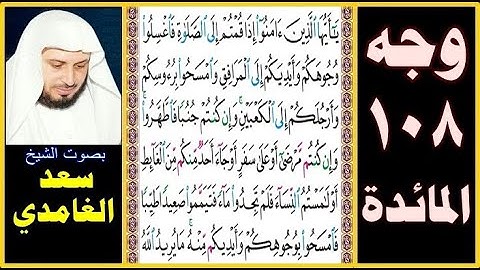 وجه
١٠٨
المائدة
يَٰٓأَيُّهَا ٱلَّذِينَ ءَامَنُوٓاْ إِذَا قُمۡتُمۡ إِلَى ٱلصَّلَوٰةِ فَٱغۡسِلُواْ
وُجُوهَكُمۡ وَأَيۡدِيَكُمۡ إِلَى ٱلۡمَرَافِقِ وَٱمۡسَحُواْ بِرُءُوسِكُمۡ
وَأَرۡجُلَكُمۡ إِلَى ٱلۡكَعۡبَيۡنِۚ وَإِن كُنتُمۡ جُنُبٗا فَٱطَّهَّرُواْۚ
وَإِن كُنتُم مَّرۡضَىٰٓ أَوۡ عَلَىٰ سَفَرٍ أَوۡ جَآءَ أَحَدٞ مِّنكُم مِّنَ ٱلۡغَآئِطِ
أَوۡ لَٰمَسۡتُمُ ٱلنِّسَآءَ فَلَمۡ تَجِدُواْ مَآءٗ فَتَيَمَّمُواْ صَعِيدٗا طَيِّبٗا
فَٱمۡسَحُواْ بِوُجُوهِكُمۡ وَأَيۡدِيكُم مِّنۡهُۚ مَا يُرِيدُ ٱللَّهُ
بصوت الشيخ
سعد
الغامدي